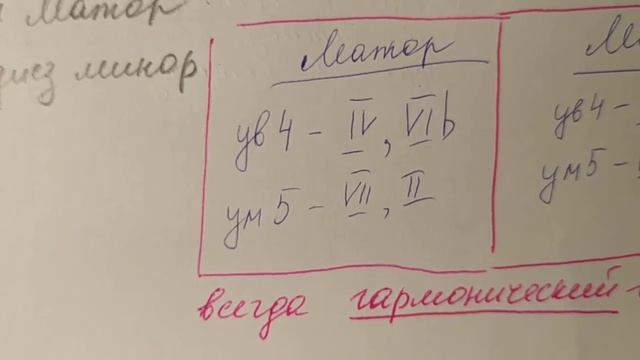 Мажор
диез минор
Мажор
ув4 – IV, VIb
ум5 – VII, II
ув4 –
ум5 –
всегда гармонический